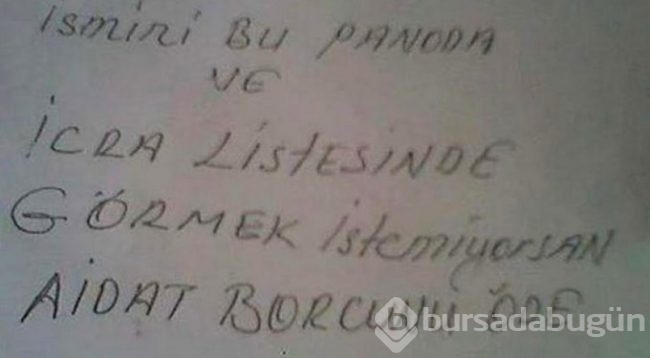 ismini BU PANODA
VE
İCRA LİSTESİNDE
GÖRMEK istemiyorsAN
AİDAT BORCUNU ÖDE
bursadabugün